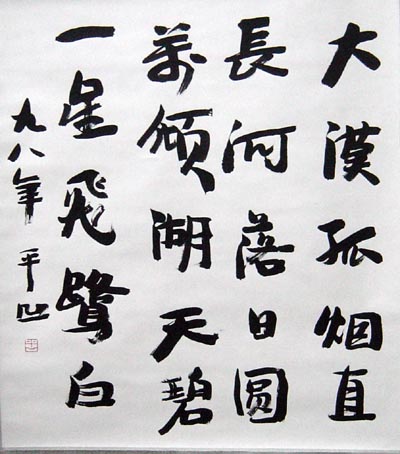 大漠孤烟直
長河落日圆
萬頃湖天碧
一星飛鷺白
九八年 平凹